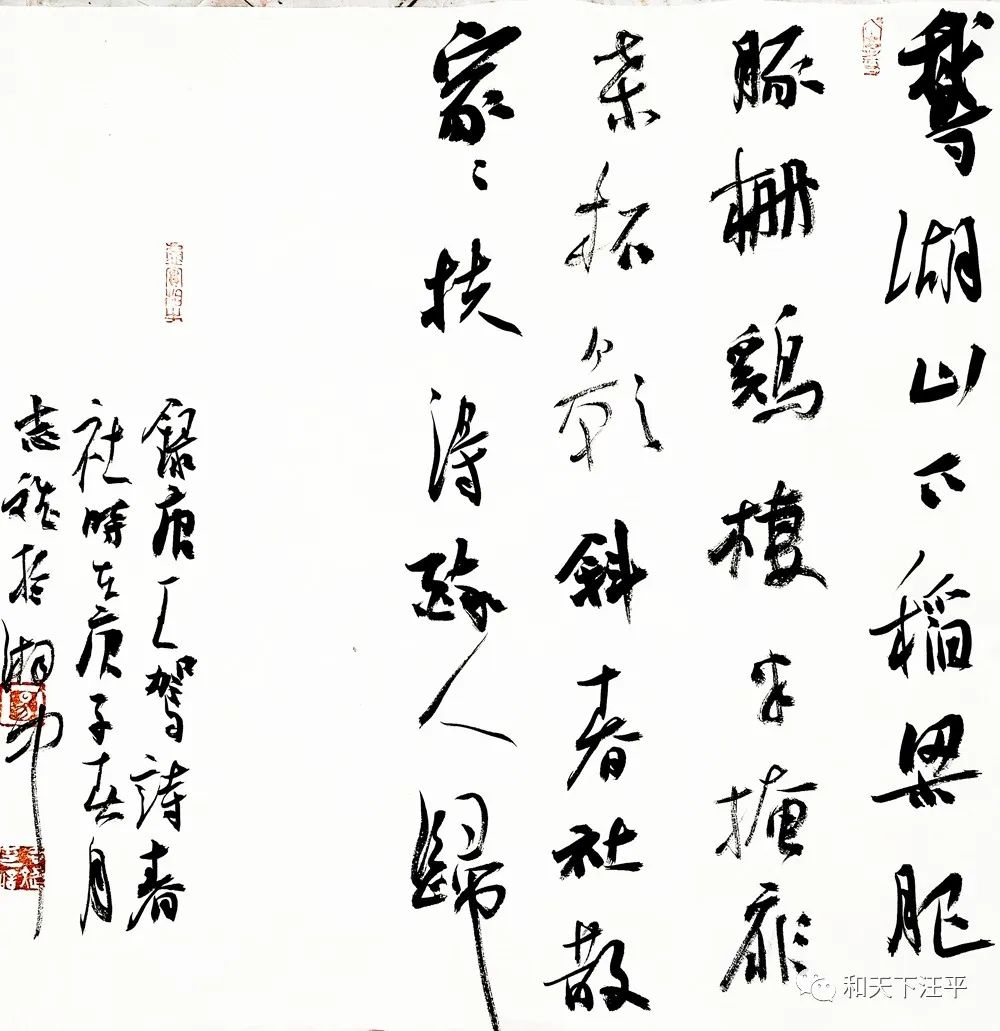 鵞湖山下稻粱肥
豚柵鷄棲半掩扉
桒柘影斜春社散
家〻扶得醉人歸
錄唐王駕詩春
社時在庚子春月
志於
和天下汪平